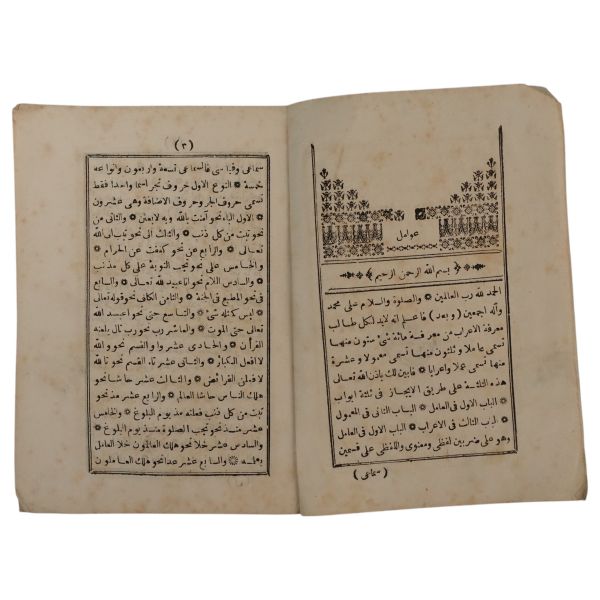 عوامل
بسم الله الرحمن الرحيم
الحمد لله رب العالمين والصلوة والسلام على محمد
وآله اجمعين ( وبعد ) فاعلم انه لابد لكل طالب
معرفة الاعراب من معرفة مائة شئ ستون منها
تسمى عاملا وثلثون منها تسمى معمولا وعشرة
منها تسمى عملا واعرابا فابين لك باذن الله تعالى
هذه الثلثة على طريق الايجاز فى ثلثة ابواب
الباب الاول فى العامل الباب الثانى فى المعمول
الباب الثالث فى الاعراب الباب الاول فى العامل
وهو على ضربين لفظى ومعنوى واللفظى على قسمين
( سماعى )
(٣)
سماعى وقياسى فالسماعى تسعة واربعون وانواعه
خمسة النوع الاول حروف تجر اسما واحدا فقط
تسمى حروف الجر وحروف الاضافة وهى عشرون
الاول الباء نحو آمنت بالله وبه لابعثن والثانى من
تبت من كل ذنب والثالث الى نحو تبت الى الله
تعالى والرابع عن نحو كففت عن الحرام
والخامس على نحو تجب التوبة على كل مذنب
والسادس اللام نحو انا عبيد لله تعالى والسابع
فى نحو المطيع فى الجنة والثامن الكاف نحو قوله تعالى
ليس كمثله شئ والتاسع حتى نحو اعبد الله
تعالى حتى الموت والعاشر رب نحو رب تال يلعنه
القرأن والحادى عشر واو القسم نحو والله
لا افعل الكبائر والثانى عشر تاء القسم نحو تالله
لافعلن الفرائض والثالث عشر حاشا نحو
هلك الناس حاشا العالم والرابع عشر مذ نحو
تبت من كل ذنب فعلته مذ يوم البلوغ والخامس
عشر منذ نحو تجب الصلوة منذ يوم البلوغ
والسادس عشر خلا نحو هلك العالمون خلا العامل
بعلمه والسابع عشر عدا نحو هلك العاملون